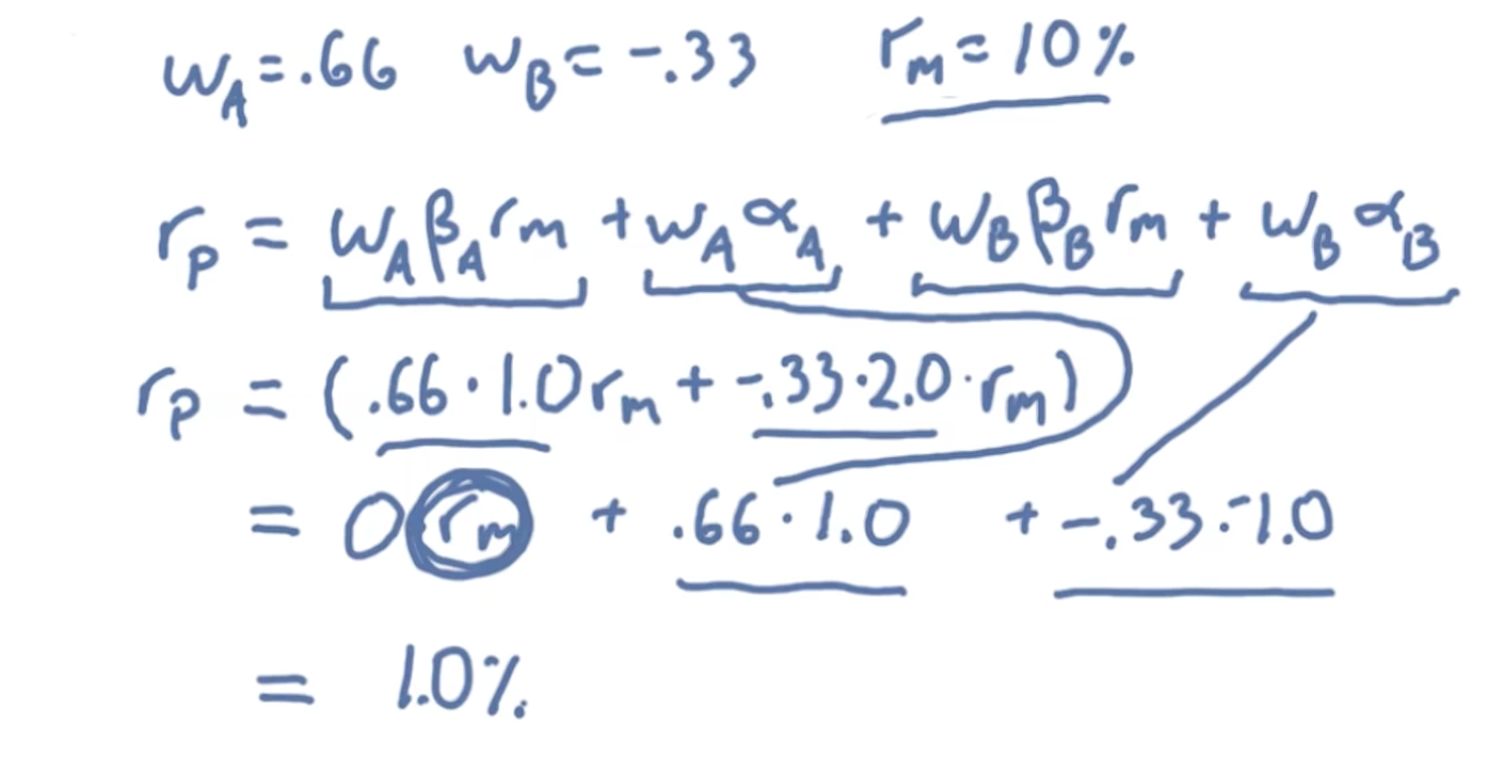 w_A = .66 w_B = -.33 r_m = 10%
r_p = w_A β_A r_m + w_A α_A + w_B β_B r_m + w_B α_B
r_p = (.66 · 1.0 r_m + -.33 · 2.0 · r_m)
= 0 r_m + .66 · 1.0 + -.33 · -1.0
= 1.0%